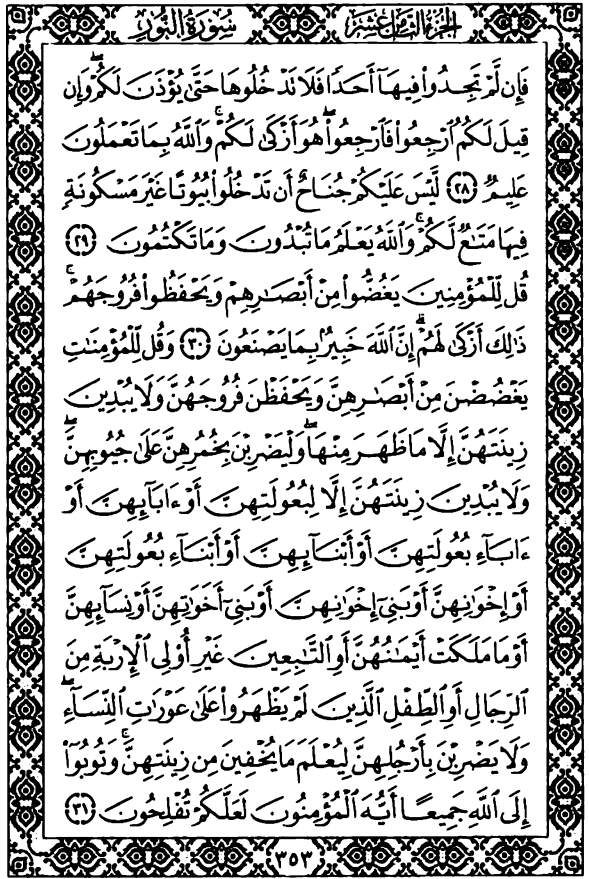 الجزء الثامن عشر سورة النور
فَإِن لَّمْ تَجِدُوا۟ فِيهَآ أَحَدًا فَلَا تَدْخُلُوهَا حَتَّىٰ يُؤْذَنَ لَكُمْ ۖ وَإِن
قِيلَ لَكُمُ ٱرْجِعُوا۟ فَٱرْجِعُوا۟ ۖ هُوَ أَزْكَىٰ لَكُمْ ۚ وَٱللَّهُ بِمَا تَعْمَلُونَ
عَلِيمٌ ﴿٢٨﴾ لَّيْسَ عَلَيْكُمْ جُنَاحٌ أَن تَدْخُلُوا۟ بُيُوتًا غَيْرَ مَسْكُونَةٍ
فِيهَا مَتَٰعٌ لَّكُمْ ۚ وَٱللَّهُ يَعْلَمُ مَا تُبْدُونَ وَمَا تَكْتُمُونَ ﴿٢٩﴾
قُل لِّلْمُؤْمِنِينَ يَغُضُّوا۟ مِنْ أَبْصَٰرِهِمْ وَيَحْفَظُوا۟ فُرُوجَهُمْ ۚ
ذَٰلِكَ أَزْكَىٰ لَهُمْ ۗ إِنَّ ٱللَّهَ خَبِيرٌۢ بِمَا يَصْنَعُونَ ﴿٣٠﴾ وَقُل لِّلْمُؤْمِنَٰتِ
يَغْضُضْنَ مِنْ أَبْصَٰرِهِنَّ وَيَحْفَظْنَ فُرُوجَهُنَّ وَلَا يُبْدِينَ
زِينَتَهُنَّ إِلَّا مَا ظَهَرَ مِنْهَا ۖ وَلْيَضْرِبْنَ بِخُمُرِهِنَّ عَلَىٰ جُيُوبِهِنَّ ۖ
وَلَا يُبْدِينَ زِينَتَهُنَّ إِلَّا لِبُعُولَتِهِنَّ أَوْ ءَابَآئِهِنَّ أَوْ
ءَابَآءِ بُعُولَتِهِنَّ أَوْ أَبْنَآئِهِنَّ أَوْ أَبْنَآءِ بُعُولَتِهِنَّ
أَوْ إِخْوَٰنِهِنَّ أَوْ بَنِىٓ إِخْوَٰنِهِنَّ أَوْ بَنِىٓ أَخَوَٰتِهِنَّ أَوْ نِسَآئِهِنَّ
أَوْ مَا مَلَكَتْ أَيْمَٰنُهُنَّ أَوِ ٱلتَّٰبِعِينَ غَيْرِ أُو۟لِى ٱلْإِرْبَةِ مِنَ
ٱلرِّجَالِ أَوِ ٱلطِّفْلِ ٱلَّذِينَ لَمْ يَظْهَرُوا۟ عَلَىٰ عَوْرَٰتِ ٱلنِّسَآءِ ۖ
وَلَا يَضْرِبْنَ بِأَرْجُلِهِنَّ لِيُعْلَمَ مَا يُخْفِينَ مِن زِينَتِهِنَّ ۚ وَتُوبُوٓا۟
إِلَى ٱللَّهِ جَمِيعًا أَيُّهَ ٱلْمُؤْمِنُونَ لَعَلَّكُمْ تُفْلِحُونَ ﴿٣١﴾
٣٥٣